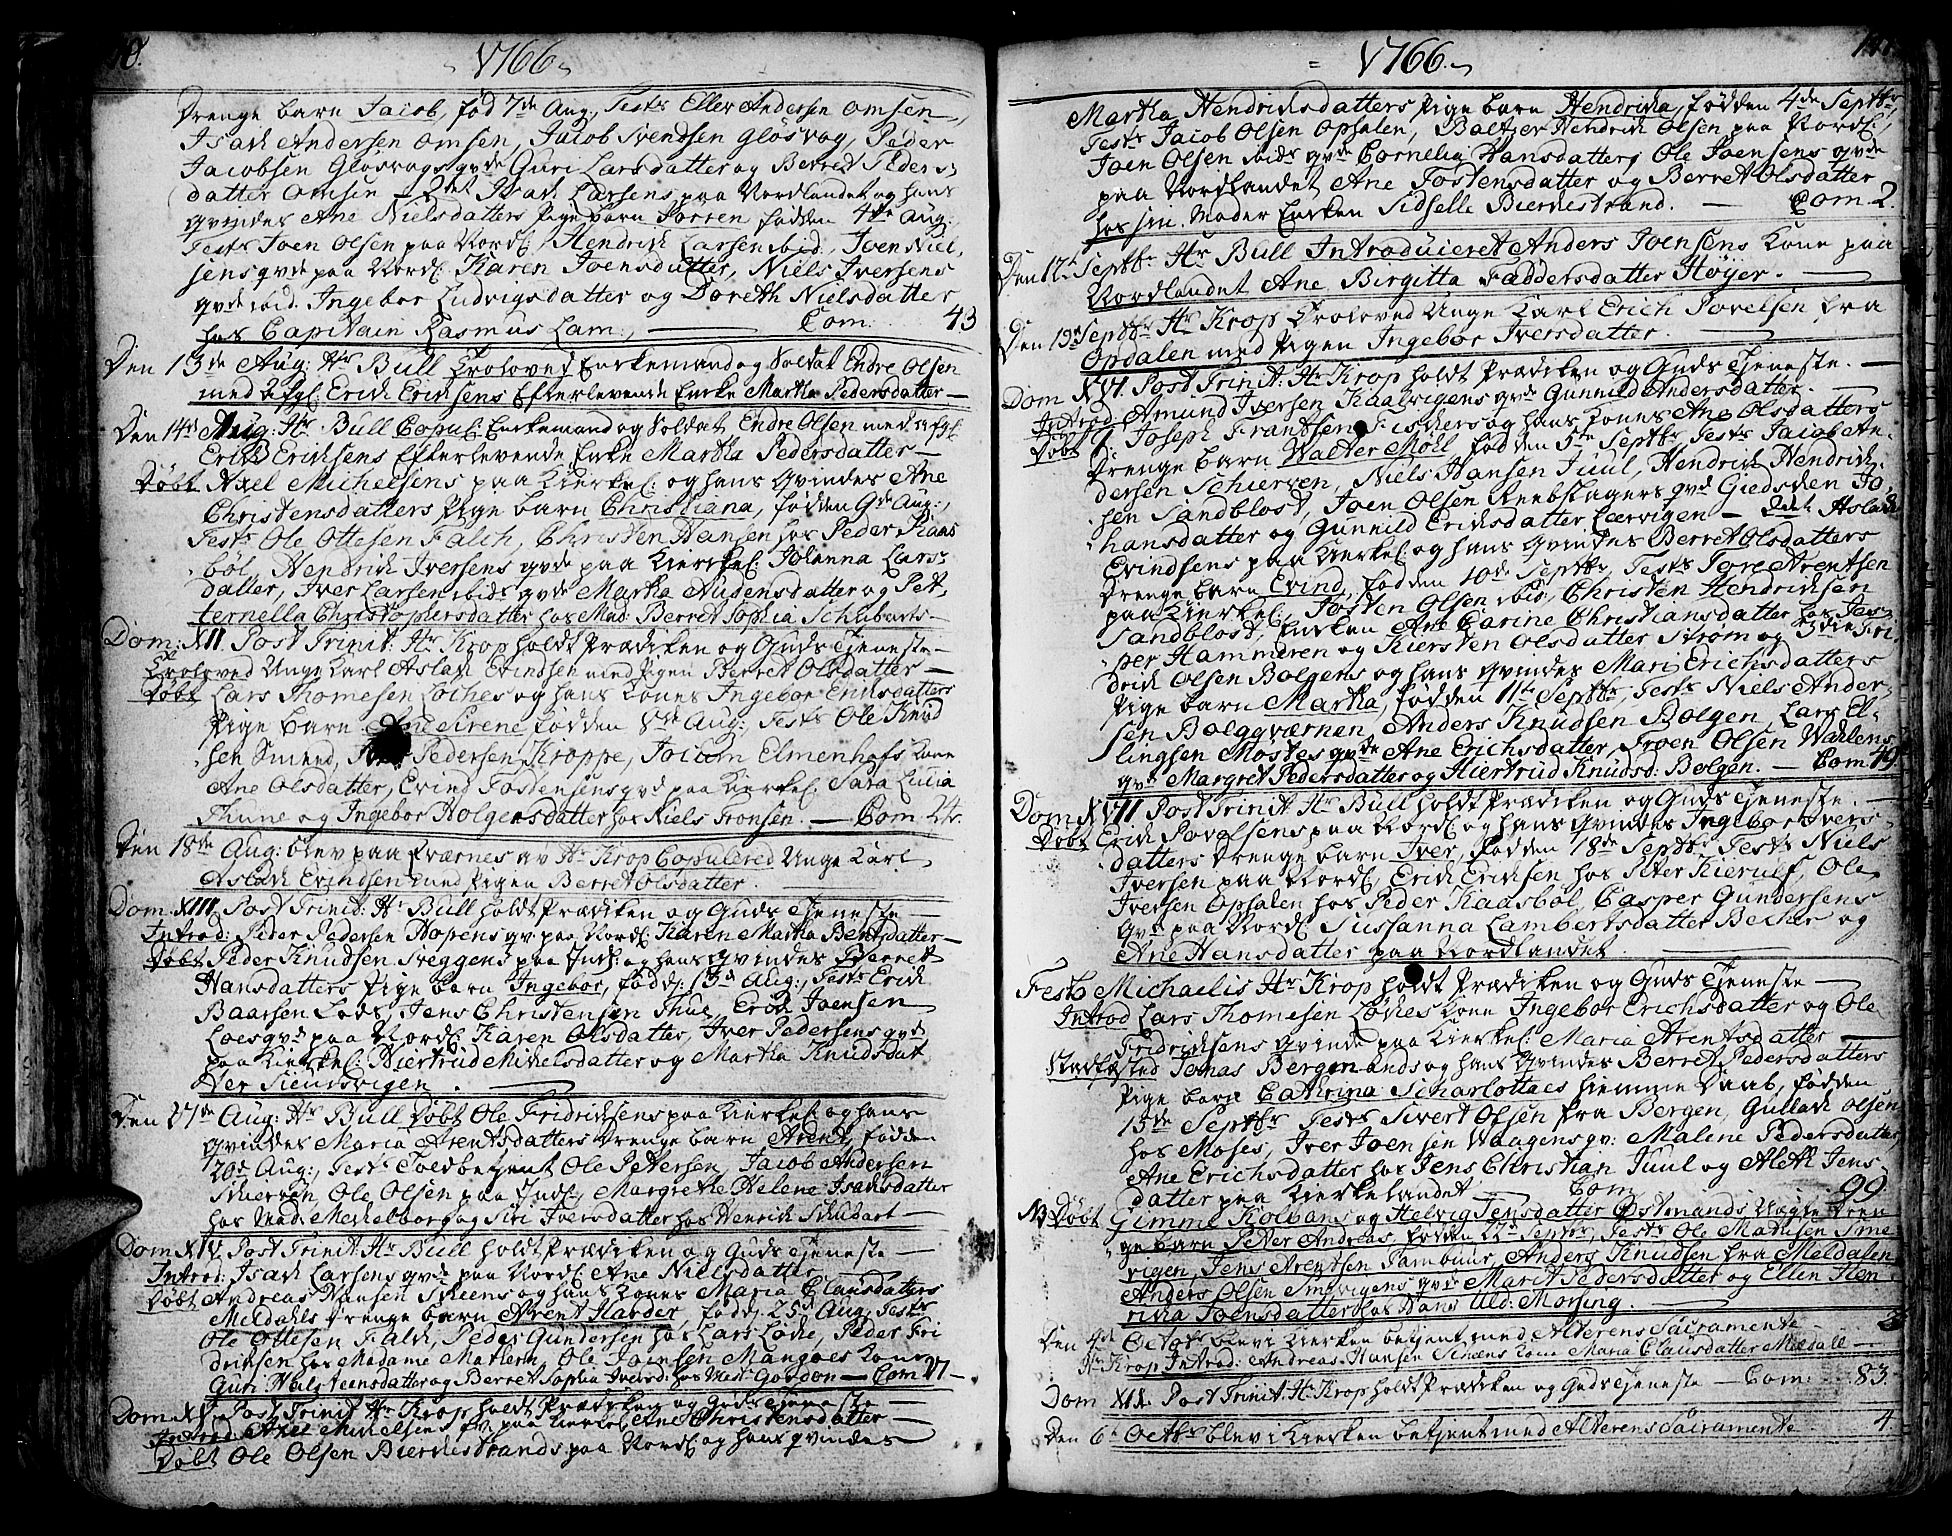 1766
Drenge barn Jacob, fød 7de Aug, Test: Ellev Andersen Omsen,
Isach Andersen Omsen, Jacob Svendsen Glosvog, Peder
Jacobsen Glosvogs qvde Guri Larsdatter og Berret Peders
datter Omsen - 2det Isach Larsens paa Nordlandet og hans
qvindes Ane Nielsdatters Pige barn Porren fødden 4de Aug:
Test: Joen Olsen paa Nord: Hendrich Larsen ibid: Joen Niel
sens qvde paa Nord: Karen Joensdatter, Niels Iversens
qvde ibid. Ingebor Ludvigsdatter og Doreth Nielsdatter
hos Capitain Rasmus Lam. Com: 43
Den 13de Aug: Hr Bull Troloved Enkemand og Soldat Endre Olsen
med afgl: Erich Erichsens Efterlevende Enke Martha Pedersdatter
Den 14de Aug: Hr Bull Copul: Enkemand og Soldat Endre Olsen med afgl:
Erich Erichsens Efterlevende Enke Martha Pedersdatter
Døbt Axel Michelsens paa Kierkel: og hans Qvindes Ane
Christensdatters Pige barn Christiana, fødden 9de Aug:,
Test: Ole Ottesen Falch, Christen Hansen hos Peder Kaas
bøl, Hendrich Iversens qvde paa Kierkel: Johanna Lars
datter, Iver Larsen ibid: qvde Martha Audensdatter og Pet
ternella Christophersdatter hos Mad: Berret Sophia Schubarts
Dom: XII Post Trinit: Hr Krop holdt Prædiken og Guds Tjeneste
Troloved Unge Karl Aslach Evindsen med Pigen Berret Olsdatter
Døbt Lars Thomesen Løches og hans Kones Ingebor Erichsdatters
Pige barn Ane Sirene fødden 8de Aug: Test: Ole Knud
sen Smed, Pedersen Kroppe, Jocum Elmenhofs Kone
Ane Olsdatter, Evind Tostensens qvd paa Kierkel: Sara Lucia
Thune og Ingebor Holgersdatter hos Niels Tronsen. Com 24.
Den 18de Aug: blev paa Qværnes av Hr Krop Copulered Unge Karl
Aslach Evindsen med Pigen Berret Olsdatter.
Dom: XIII Post Trinit: Hr Bull holdt Prædiken og Guds Tjeneste
Introd: Peder Pedersen Hopens qv paa Nord: Karen Martha Bentsdatter
Døbt Peder Knudsen Sveggens paa Indl: og hans qvindes Berret
Hansdatters Pige barn Ingebor, fødd: 13d Aug:, Test: Erich
Baarsen Lods, Jens Christensen Thue, Erich Joensen
Loes qvd paa Nord: Karen Olsdatter, Iver Pedersens qvd
paa Kierkel: Hiertrud Mikelsdatter og Martha Knudsdat
ter Siendsvigen.
Den 27de Aug: Hr Bull Døbt Ole Fridrichsens paa Kierkel: og hans
qvindes Maria Arentsdatters Drenge barn Arent, fødden
20d Aug:, Test: Toldbetjent Ole Petersen, Jacob Andersen
Skierven Ole Olsen paa Indl: Margrethe Helene Isachsdatter
hos Mad: Meckelborg og Siri Joersdatter hos Henrich Schubart
Dom XIV: Post Trinit: Hr Bull holdt Prædiken og Guds Tjeneste
Introd: Isach Larsens qvd paa Nord: Ane Nielsdatter
Døbt Andreas Hansen Skeens og hans Kones Maria Clausdatters
Meldahls Drenge barn Arent Harder, fødd: 25d Aug, Test:
Ole Ottesen Falch, Peder Gundersen hos Lars Løche, Peder Fri
drichsen hos Madame Mathern, Ole Joensen Mangoes Kone
Guri Halsteensdatter og Berret Sophia Iverd: hos Mad: Gordon Com 27
Dom XV Post Trinit Hr Krop holdt Prædiken og Guds Tjeneste
Introd Axel Mikelsens qv. paa Kierkel Ane Christensdatter
Døbt Ole Olsen Bierkestrands paa Nord: og hans qvindes
1766.
Martha Hendrichsdatters Pige barn Hendricha, fødden 4de Septbr,
Test: Jacob Olsen Opsalen, Baltzer Hendrich Olsen paa Nord:,
Joen Olsen ibid: qvde Cornelia Hansdatter, Ole Joensens qvde
paa Nordlandet Ane Tostensdatter og Berret Olsdatter
hos sin Moder Encken Sidselle Bierkestrand. Com 2.
Den 12te Septbr Hr Bull Introduceret Anders Joensens Kone paa
Nordlandet Ane Birgitta Fæddersdatter Høyer.
Den 19de Septbr Hr Krop Troloved Unge Karl Erich Povelsen fra
Opdalen med Pigen Ingebor Iversdatter.
Dom XVI. Post Trinit: Hr Krop holdt Prædiken og Guds Tjeneste.
Introd: Amund Iversen Kaalvigens qvde Gunnild Andersdatter.
Døbt Joseph Frantsen Fischers og hans Kones Ane Olsdatters
Drenge barn Walter Möll fødden 5te Septbr Test: Jacob An
dersen Schierven, Niels Hansen Juul, Hendrich Hendrich
sen Sandblost, Joen Olsen Reebslagers qvd Giedsken Jo
hansdatter og Gunnild Erichsdatter Leervigen - 2det Aslach
Evindsens paa Kierkel: og hans qvindes Berret Olsdatters
Drenge barn Evind, fødden 10de Septbr, Test: Tore Arentsen
paa Kierkel:, Tosten Olsen ibid:, Christen Hendrichsen
Sandblost, Encken Ane Carine Christiansdatter hos Jes
per Hammeren og Kiersten Olsdatter Strøm og 3die Fri
drich Olsen Bolgens og hans qvindes Mari Erichsdatters
Pige barn Martha, fødden 11te Septbr, Test: Niels Ander
sen Bolgqværnen, Anders Knudsen Bolgen, Lars El
lingsen Mostes qvde Ane Erichsdatter, Troen Olsen Wahlens
qvd Margret Pedersdatter og Hiertrud Knudsd: Bolgen. Com 49.
Dom XVII Post Trinit Hr Bull holdt Prædiken og Guds Tjeneste.
Døbt Erich Povelsens paa Nord: og hans qvindes Ingebor Ivers
datters Drenge barn Iver, fødden 18de Septbr Test: Niels
Iversen paa Nord: Erich Erichsen hos Peter Kierulf, Ole
Iversen Opsalen hos Peder Kaasbøl, Casper Gundersens
qvd paa Nord: Sussanna Lambertsdatter Becker og
Ane Hansdatter paa Nordlandet
Festo Michaelis Hr Krop holdt Prædiken og Guds Tjeneste
Introd Lars Thomesen Løches Kone Ingebor Erichsdatter og Ole
Fridrichsens qvinde paa Kierkel: Maria Arentsdatter
Stadfæsted Jonas Bergen ands og hans qvindes Berret Pedersdatters
Pige barn Cathrina Scharlottaes hiemme Daab, fødden
15de Septbr Test: Sivert Olsen fra Bergen, Gullach Olsen
hos Moses, Iver Joensen Waagens qv: Malene Pedersdatter,
Ane Erichsdatter hos Jens Christian Juul og Aleth Jens
datter paa Kierkelandet Com 99
NB Døbt Gimml Kolbans og Helvig Jensdatter Østmands Uægte Dren
ge barn Peter Andreas, fødden 22de Septbr, Test: Ole Madtsen Sme
vigen, Jens Arentsen Pambuur, Anders Knudsen fra Meldalen
Anders Olsen Smevigens qvde Marit Pedersdatter og Ellen Hen
richa Joensdatter hos Hans Uld: Morsing.
Den 4de Octobr blev i Kierken betjent med Alterens Sacramente 3
Hr Krop Introd: Andreas Hansen Scheens Kone Maria Clausdatter Meldale
Dom XIX Post Trinit: Hr Krop holdt Prædiken og Guds Tjeneste Com: 83
Den 6te Octbr blev i Kierken betjent med Alterens Sacramente. 4.